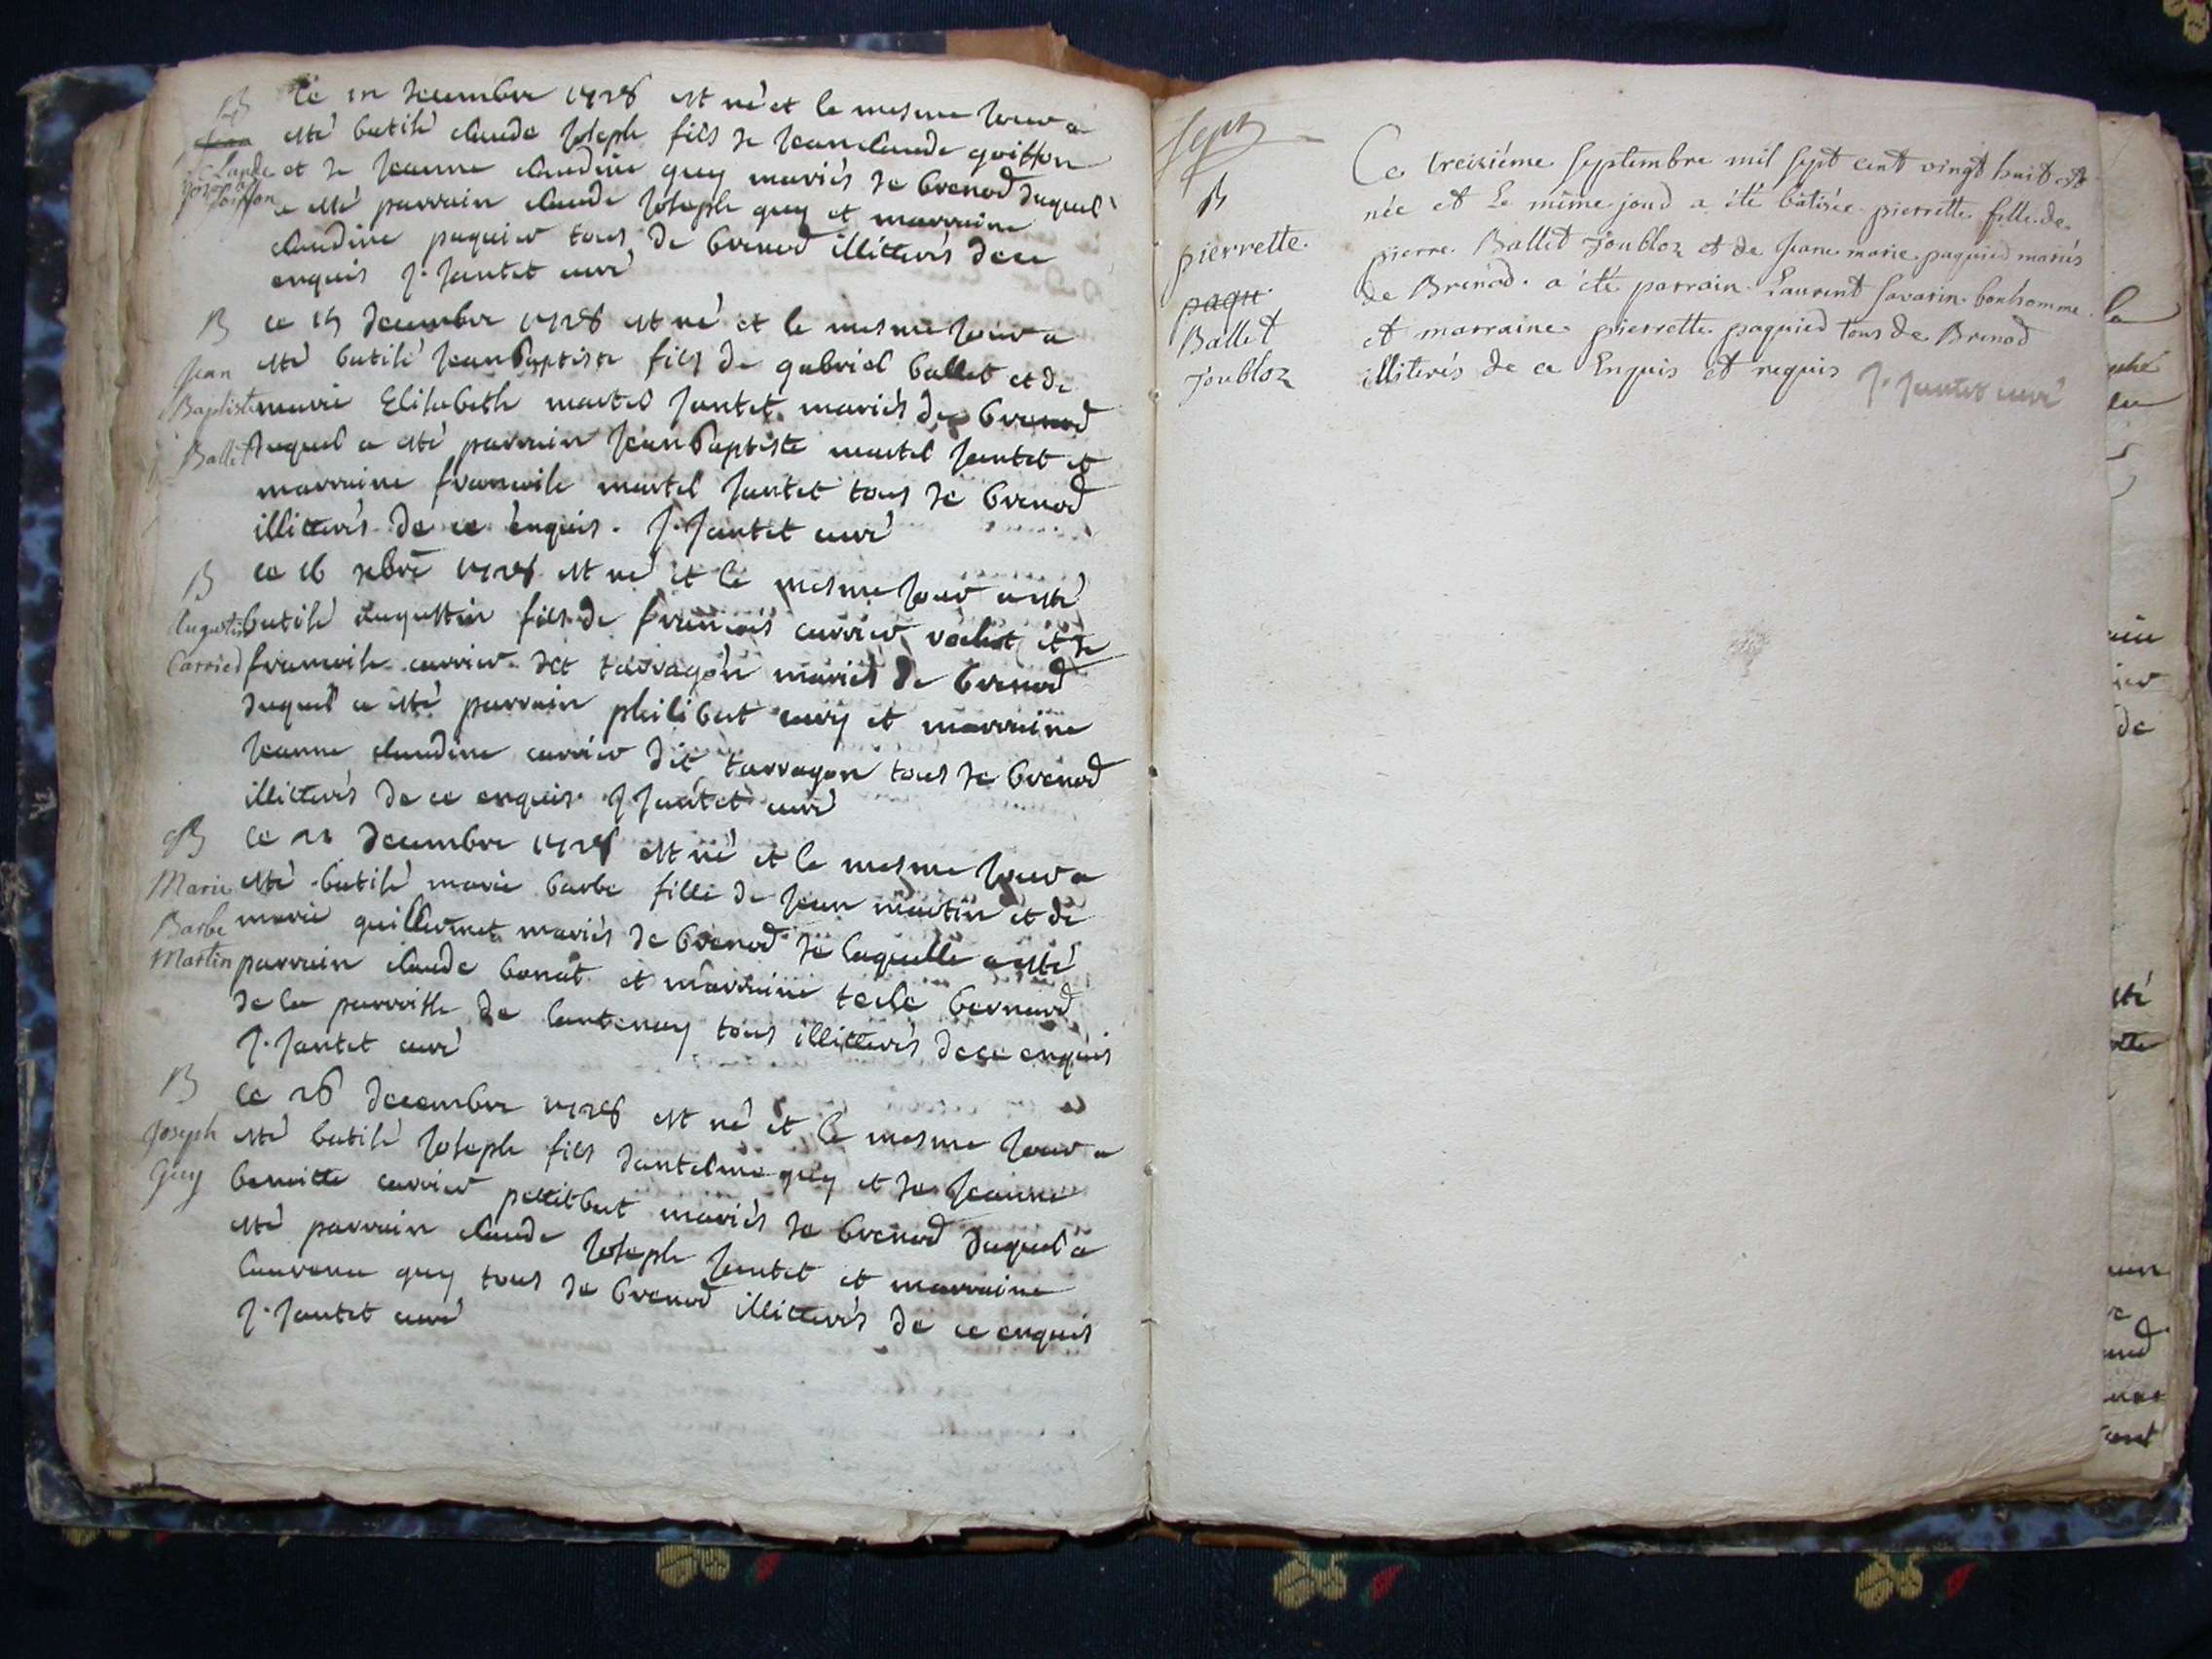 B
Jean
Claude
Joseph
Goiffon
ce 12 decembre 1728 est né et le mesme jour a
esté batisé claude Joseph fils de Jean claude goiffon
et de Jeanne claudine guy mariés de brenod duquel
a esté parrain claude Joseph guy et marraine
claudine paquier tous de brenod illitterés de ce
enquis J. Jantet curé
B
Jean
Baptiste
Ballet
ce 15 decembre 1728 est né et le mesme jour a
esté batisé Jean Baptiste fils de gabriel ballet et de
marie Elisabeth martel Jantet mariés de brenod
duquel a esté parrain Jean Baptiste martel Jantet et
marraine francoise martel Jantet tous de brenod
illitterés de ce enquis. J. Jantet curé
B
Augustin
Carried
ce 16 xbre 1728 est né et le mesme jour a esté
batisé augustin fils de francois carrier vachat et de
francoise carrier dit tarragon mariés de brenod
duquel a esté parrain philibert cury et marraine
Jeanne claudine carrier dit tarragon tous de brenod
illitterés de ce enquis J Jantet curé
B
Marie
Barbe
Martin
ce 21 decembre 1728 est né et le mesme jour a
esté batisé marie barbe fille de Jean martin et de
marie guillermet mariés de brenod de laquelle a esté
parrain claude bonat et marraine tecle bernard
de la parroisse de lantenay tous illitterés de ce enquis
J. Jantet curé
B
Joseph
Guy
ce 26 decembre 1728 est né et le mesme jour a
esté batisé Joseph fils dantelme guy et de Jeanne
benoitte carrier petitbut mariés de brenod duquel a
esté parrain claude Joseph Jantet et marraine
laurence guy tous de brenod illitterés de ce enquis
J. Jantet curé
sept
B
pierrette
paqu
Ballet
Joubloz
Ce treiziéme septembre mil sept cent vingt huit est
née et Le même joud a été bâtisée pierrette fille de
pierre Ballet Joubloz et de Jeane marie paquied mariés
de Brénod. a été parrain Laurent savarin bonhomme
et marraine pierrette paquied tous de Brenod
illiterés de ce Enquis et requis J. Jantet curé